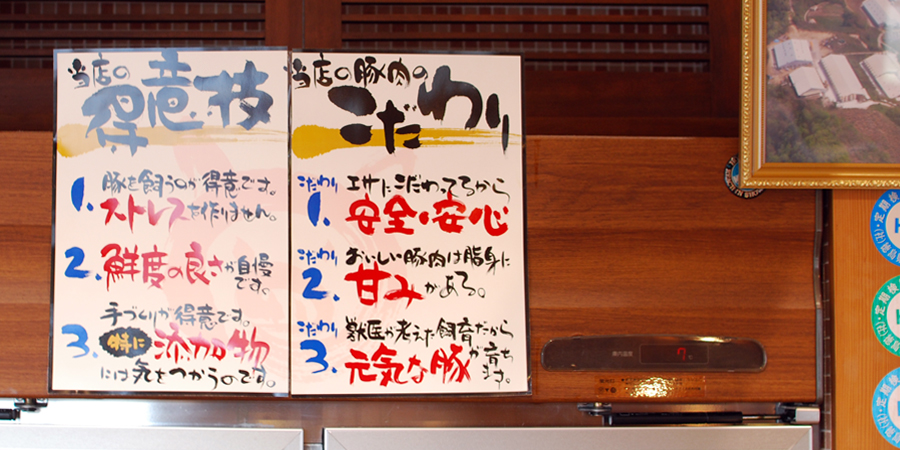 当店の
得意技
1. 豚を飼うのが得意です。
ストレスを作りません。
2. 鮮度の良さが自慢
です。
手づくりが得意です。
3. 特に 添加物
には気をつかうのです。
当店の豚肉の
こだわり
こだわり 1. エサにこだわってるから
安全・安心
こだわり 2. おいしい豚肉は脂身に
甘みがある。
こだわり 3. 獣医が考えた飼育だから
元気な豚が育ち
ます。
庫内温度
定期検
定期検